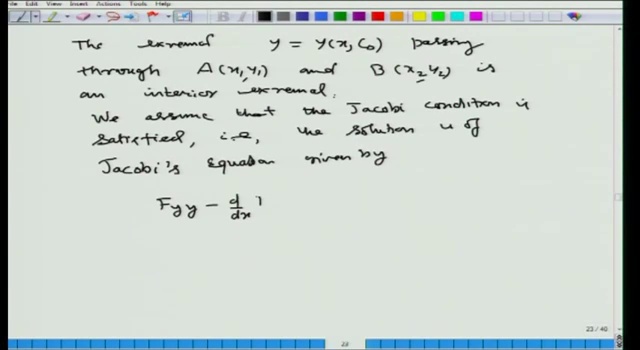 Edit View Insert Actions Tools Help
The extremal y = y(x, C0) passing
through A(x1, y1) and B(x2, y2) is
an interior extremal.
We assume that the Jacobi condition is
satisfied, i.e, the solution u of
Jacobi's Equation given by
Fyy - d/dx
23 / 40
23